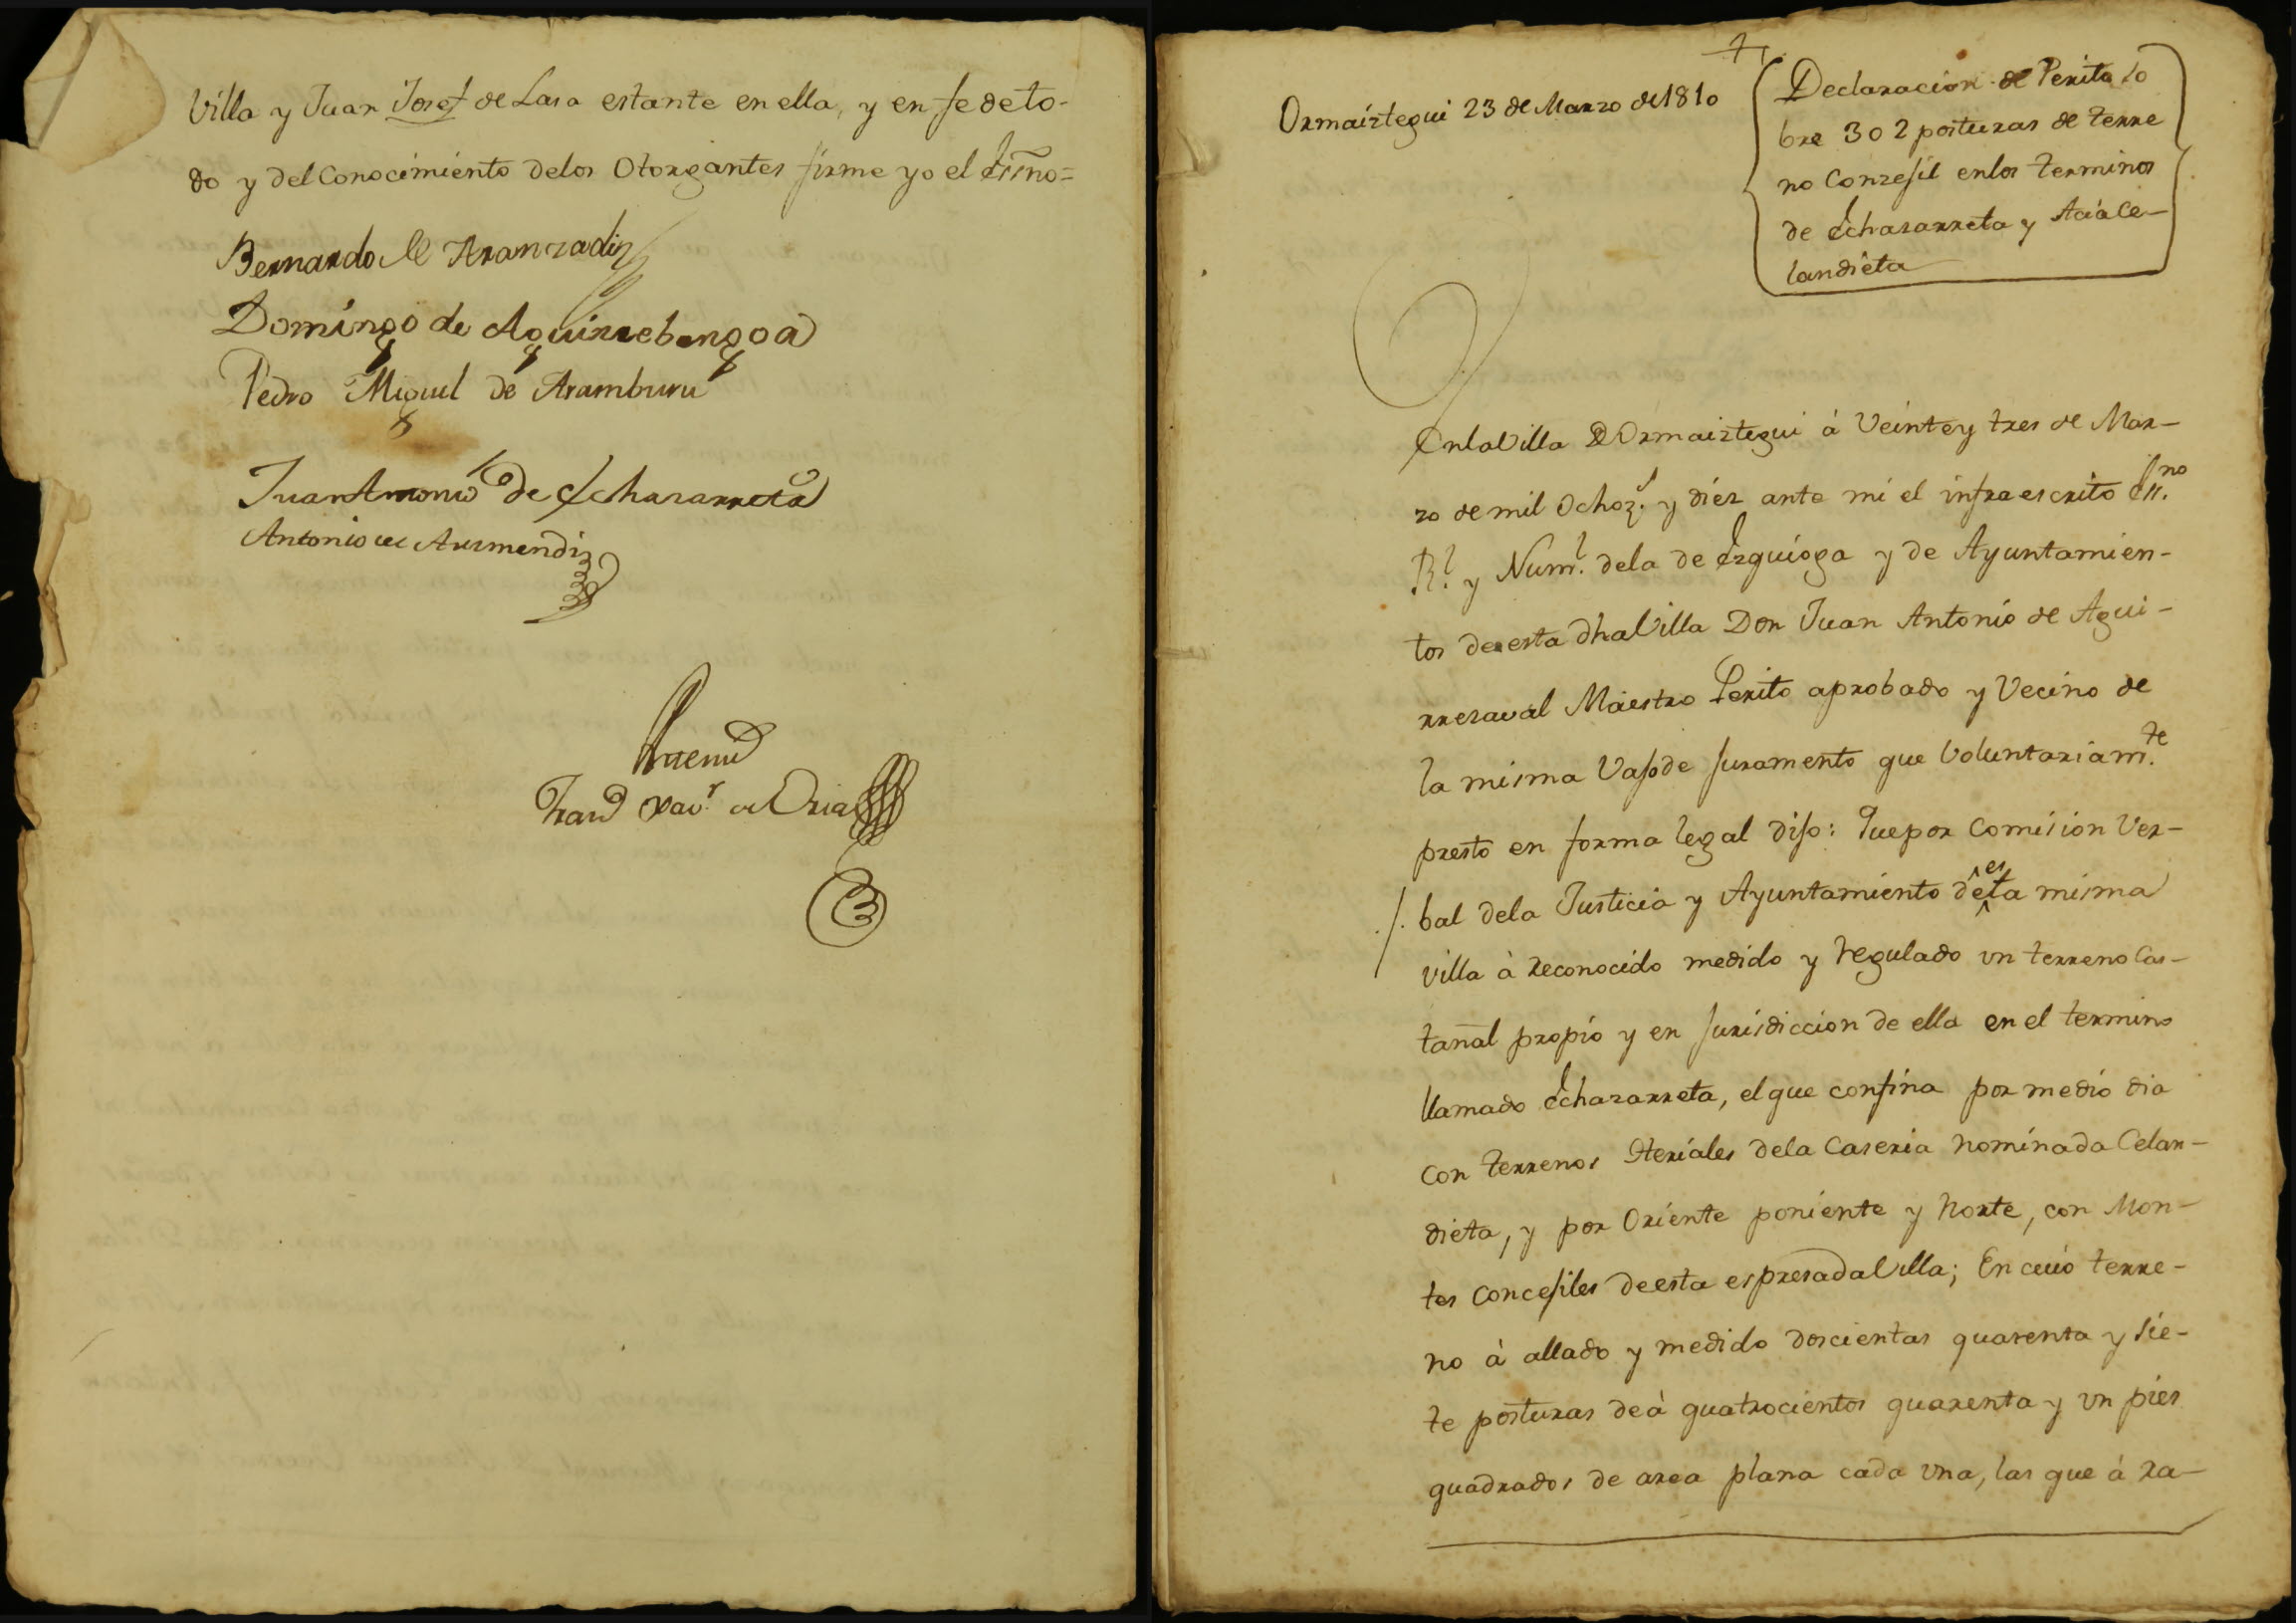 Villa y Juan Josef de Lasa estante en ella, y en fe de to-
do y del Conocimiento delos Otorgantes firme yo el Essno=
Bernardo de Aranzadi
Domingo de Aguirrebengoa
Pedro Miguel de Aramburu
Juan Antonio de Echazarreta
Antonio de Ausmendi
Antemi
Franco Xavr de Oria
71
Ormaiztegui 23 de Marzo de 1810
Declaracion de Perito so
bre 302 posturas de terre
no Conzejil enlos terminos
de Echazarreta y Aciace-
landieta
Enla Villa de Ormaiztegui à Veinte y tres de Mar-
zo de mil Ochoz.s y diez ante mi el infraescrito Ess.no
R.l y Num.l dela de Ezguioga y de Ayuntamien-
tos de esta dha Villa Don Juan Antonio de Agui-
rrezaval Maestro Perito aprobado y Vecino de
la misma Vajo de juramento que Voluntariam.te
presto en forma legal dijo: Que por Comision Ver-
./. bal dela Justicia y Ayuntamiento de esta misma
villa à reconocido medido y regulado un terreno Cas-
tañal propio y en jurisdiccion de ella en el termino
llamado Echazarreta, el que confina por medio dia
con terrenos Steriales dela Caseria nominada Celan-
dieta, y por Oriente poniente y Norte, con Mon-
tes Concejiles de esta espresada Villa; En cuio terre-
no à allado y medido doscientas quarenta y sie-
te posturas de à quatrocientos quarenta y un pies
quadrados de area plana cada una, las que à ra-